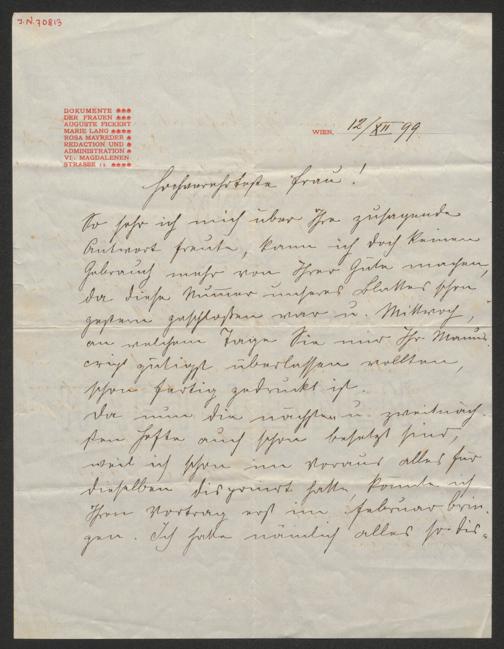 J.N. 70813
DOKUMENTE
DER FRAUEN
AUGUSTE FICKERT
MARIE LANG
ROSA MAYREDER
REDACTION UND
ADMINISTRATION
VI. MAGDALENEN
STRASSE 12
WIEN, 12/XII 99.
Hochverehrteste Frau!
So sehr ich mich über Ihre zusagende
Antwort freute, kann ich doch keinen
Gebrauch mehr von Ihrer Güte machen,
da diese Nummer unseres Blattes schon
gestern geschlossen war u. Mittwoch,
an welchem Tage Sie mir Ihr Manus-
cript gütigst überlassen wollten,
schon fertig gedruckt ist.
Da nun die nächsten u. zweitnäch-
sten Hefte auch schon besetzt sind,
weil ich schon im Voraus alles für
dieselben disponirt hatte, könnte ich
Ihren Vortrag erst im Februar brin-
gen. Ich habe nämlich alles so dis-